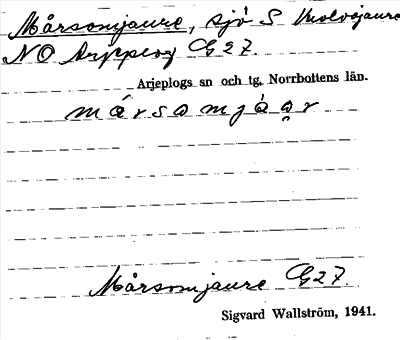 Mårsomjaure, sjö S
NO Arjeplog G27.
Arjeplogs sn och tg. Norrbottens län.
mársamjáar
Mårsomjaure G27.
Sigvard Wallström, 1941.